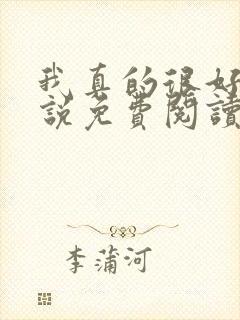 我真的很好
說免費閱讀
李蒲河